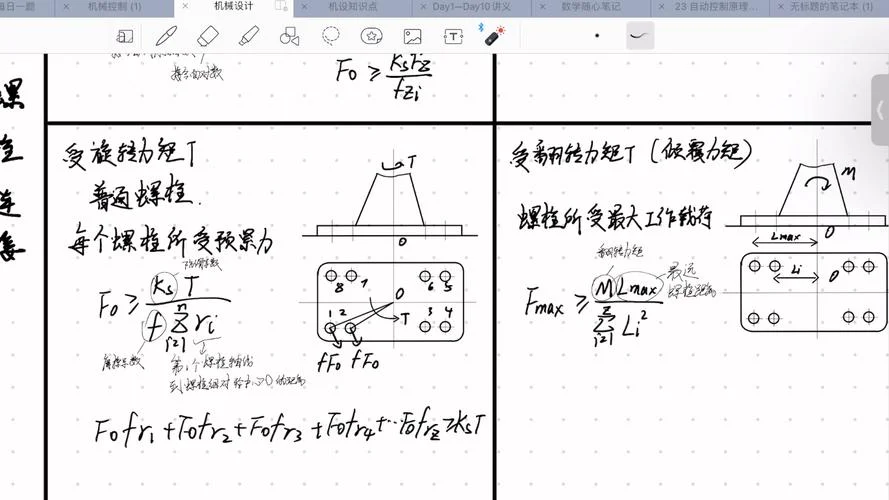 每日一题
机械控制 (1)
机械设计
机设知识点
Day1—Day10 讲义
数学随心笔记
23 自动控制原理...
无标题的笔记本 (1)
接合面对数
F0 ≥ KsFΣ
fzi
螺
栓
连
受旋转力矩T
普通螺栓
每个螺栓所受预紧力
防滑系数
F0 ≥ KsT
f Σ ri
n
i=1
摩擦系数
第i个螺栓轴线
到螺栓组对称中心O的距离
T
O
8 7 6 5
O
1 2 3 4
T
fF0 fF0
F0fr1+F0fr2+F0fr3+F0fr4+…F0frz≥KsT
受翻转力矩T (倾覆力矩)
螺栓所受最大工作载荷
翻转力矩
Fmax ≥ MLmax
Σ Li²
z
i=1
最远
螺栓距离
M
O
Lmax
Li
O